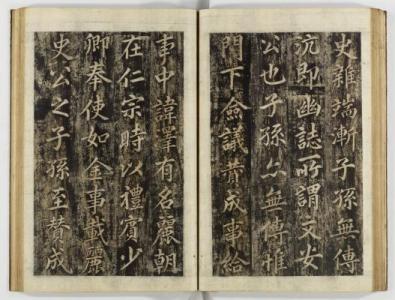 史雜端漸子孫無傳
沆即幽誌所謂文安
公也子孫亦無傳惟
門下僉議贊成事給
事中諱澤有名麗朝
在仁宗時以禮賓少
卿奉使如金事載麗
史公之子孫至贊成